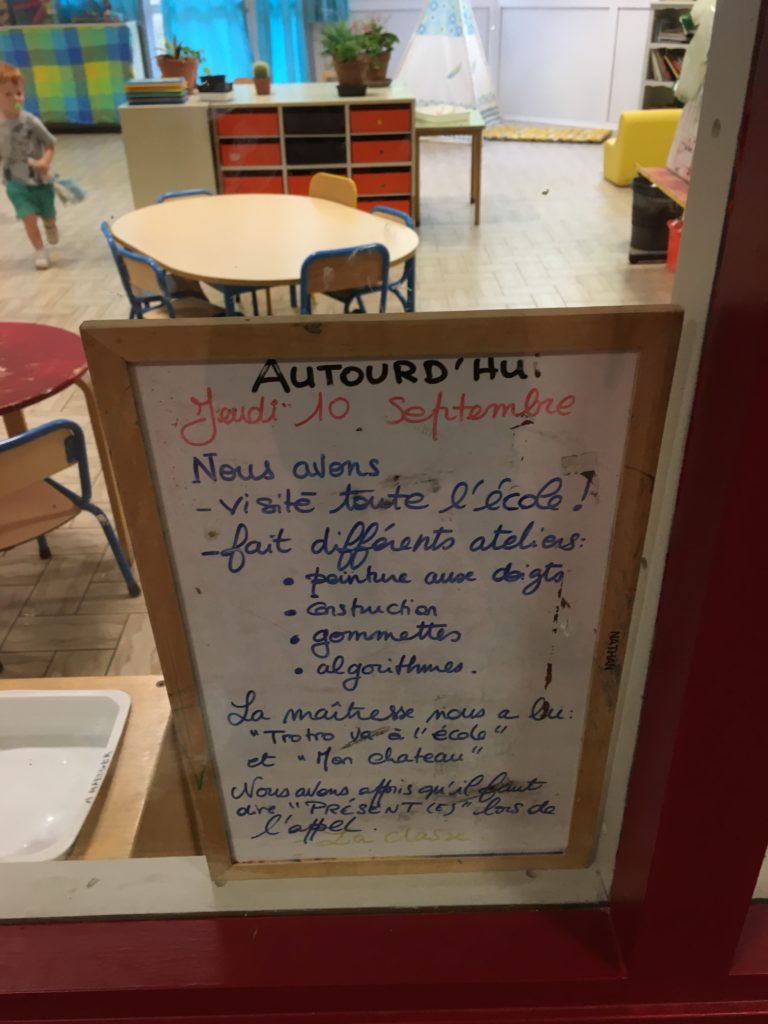 AUTOURD'HUI
Jeudi 10 Septembre
Nous avons
- visité toute l'école !
- fait différents ateliers:
• peinture aux doigts
• construction
• gommettes
• algorithmes.
La maîtresse nous a lu:
"Trotro va à l'école"
et "Mon chateau"
Nous avons appris qu'il faut
dire "PRÉSENT(E)" lors de
l'appel.
La classe.
NATHAN